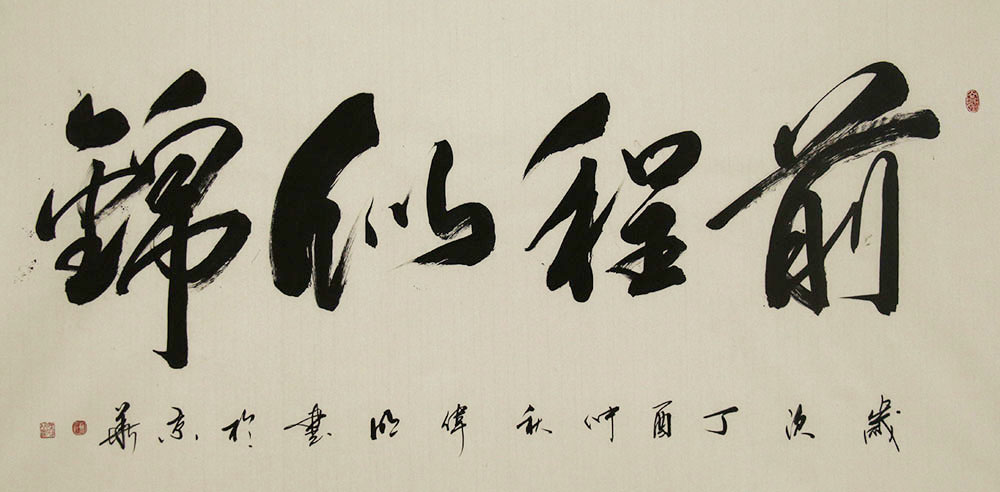 前程似錦
歲次丁酉仲秋偉明書於京華